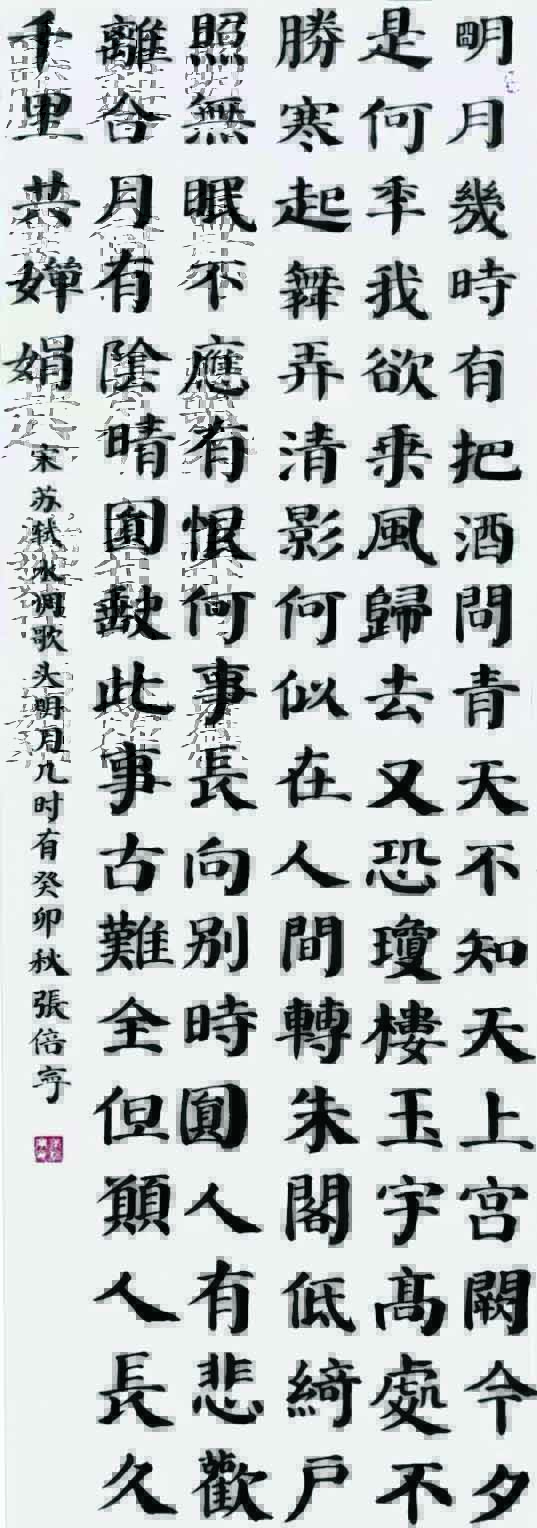 明月幾時有把酒問青天不知天上宫闕今夕
是何年我欲乘風歸去又恐瓊樓玉宇髙處不
勝寒起舞弄清影何似在人間轉朱閣低綺戶
照無眠不應有恨何事長向别時圓人有悲歡
離合月有陰晴圓缺此事古難全但願人長久
千里共嬋娟
宋苏轼水调歌头明月几时有癸卯秋張倍寧